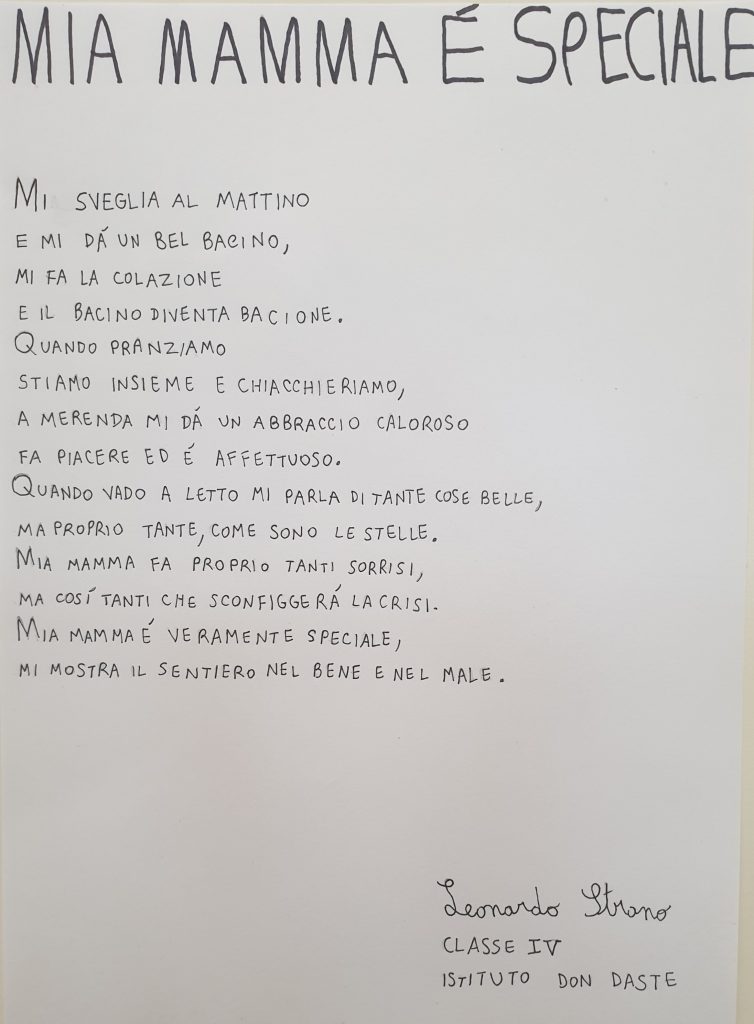 MIA MAMMA É SPECIALE
MI SVEGLIA AL MATTINO
E MI DÁ UN BEL BACINO,
MI FA LA COLAZIONE
E IL BACINO DIVENTA BACIONE.
QUANDO PRANZIAMO
STIAMO INSIEME E CHIACCHIERIAMO,
A MERENDA MI DÁ UN ABBRACCIO CALOROSO
FA PIACERE ED É AFFETTUOSO.
QUANDO VADO A LETTO MI PARLA DI TANTE COSE BELLE,
MA PROPRIO TANTE, COME SONO LE STELLE.
MIA MAMMA FA PROPRIO TANTI SORRISI,
MA COSÍ TANTI CHE SCONFIGGERÁ LA CRISI.
MIA MAMMA É VERAMENTE SPECIALE,
MI MOSTRA IL SENTIERO NEL BENE E NEL MALE.
Leonardo Strano
CLASSE IV
ISTITUTO DON DASTE